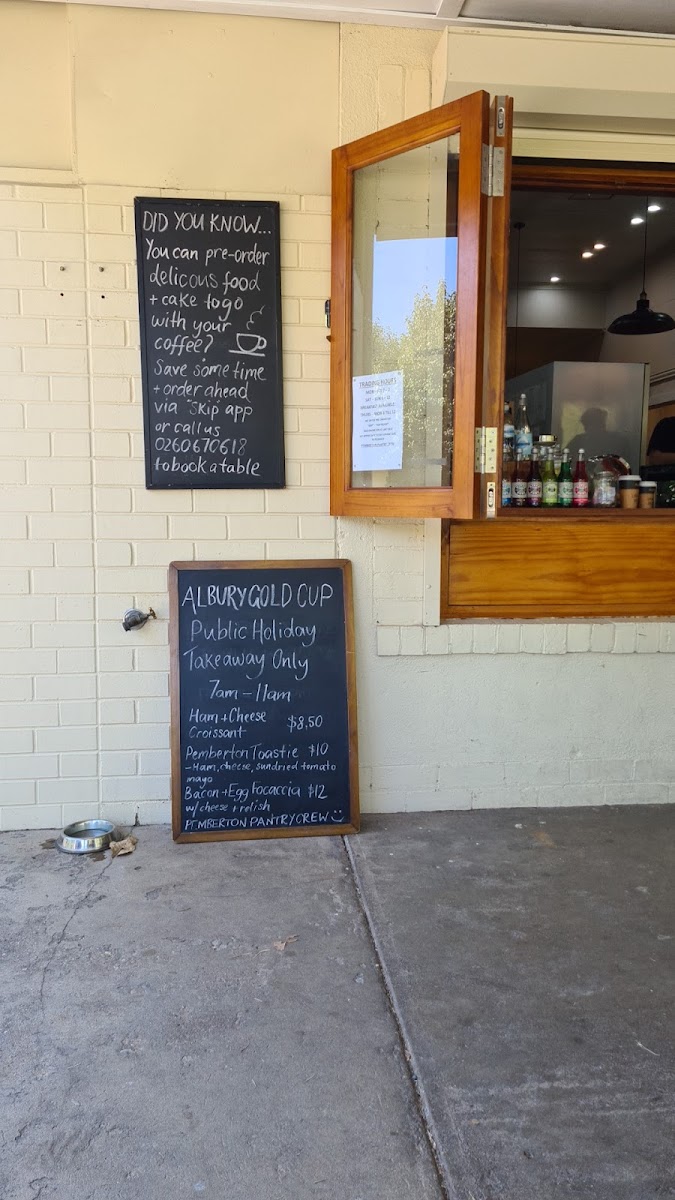 DID YOU KNOW...
You can pre-order
delicous food
+ cake to go
with your
coffee?
Save some time
+ order ahead
via "Skip app
or call us
0260670618
to book a table
TRADING HOURS
ALBURY GOLD CUP
Public Holiday
Takeaway Only
7am - 11am
Ham + Cheese $8.50
Croissant
Pemberton Toastie $10
- Ham, cheese, sundried tomato
mayo
Bacon + Egg Focaccia $12
w/ cheese + relish
PEMBERTON PANTRY CREW